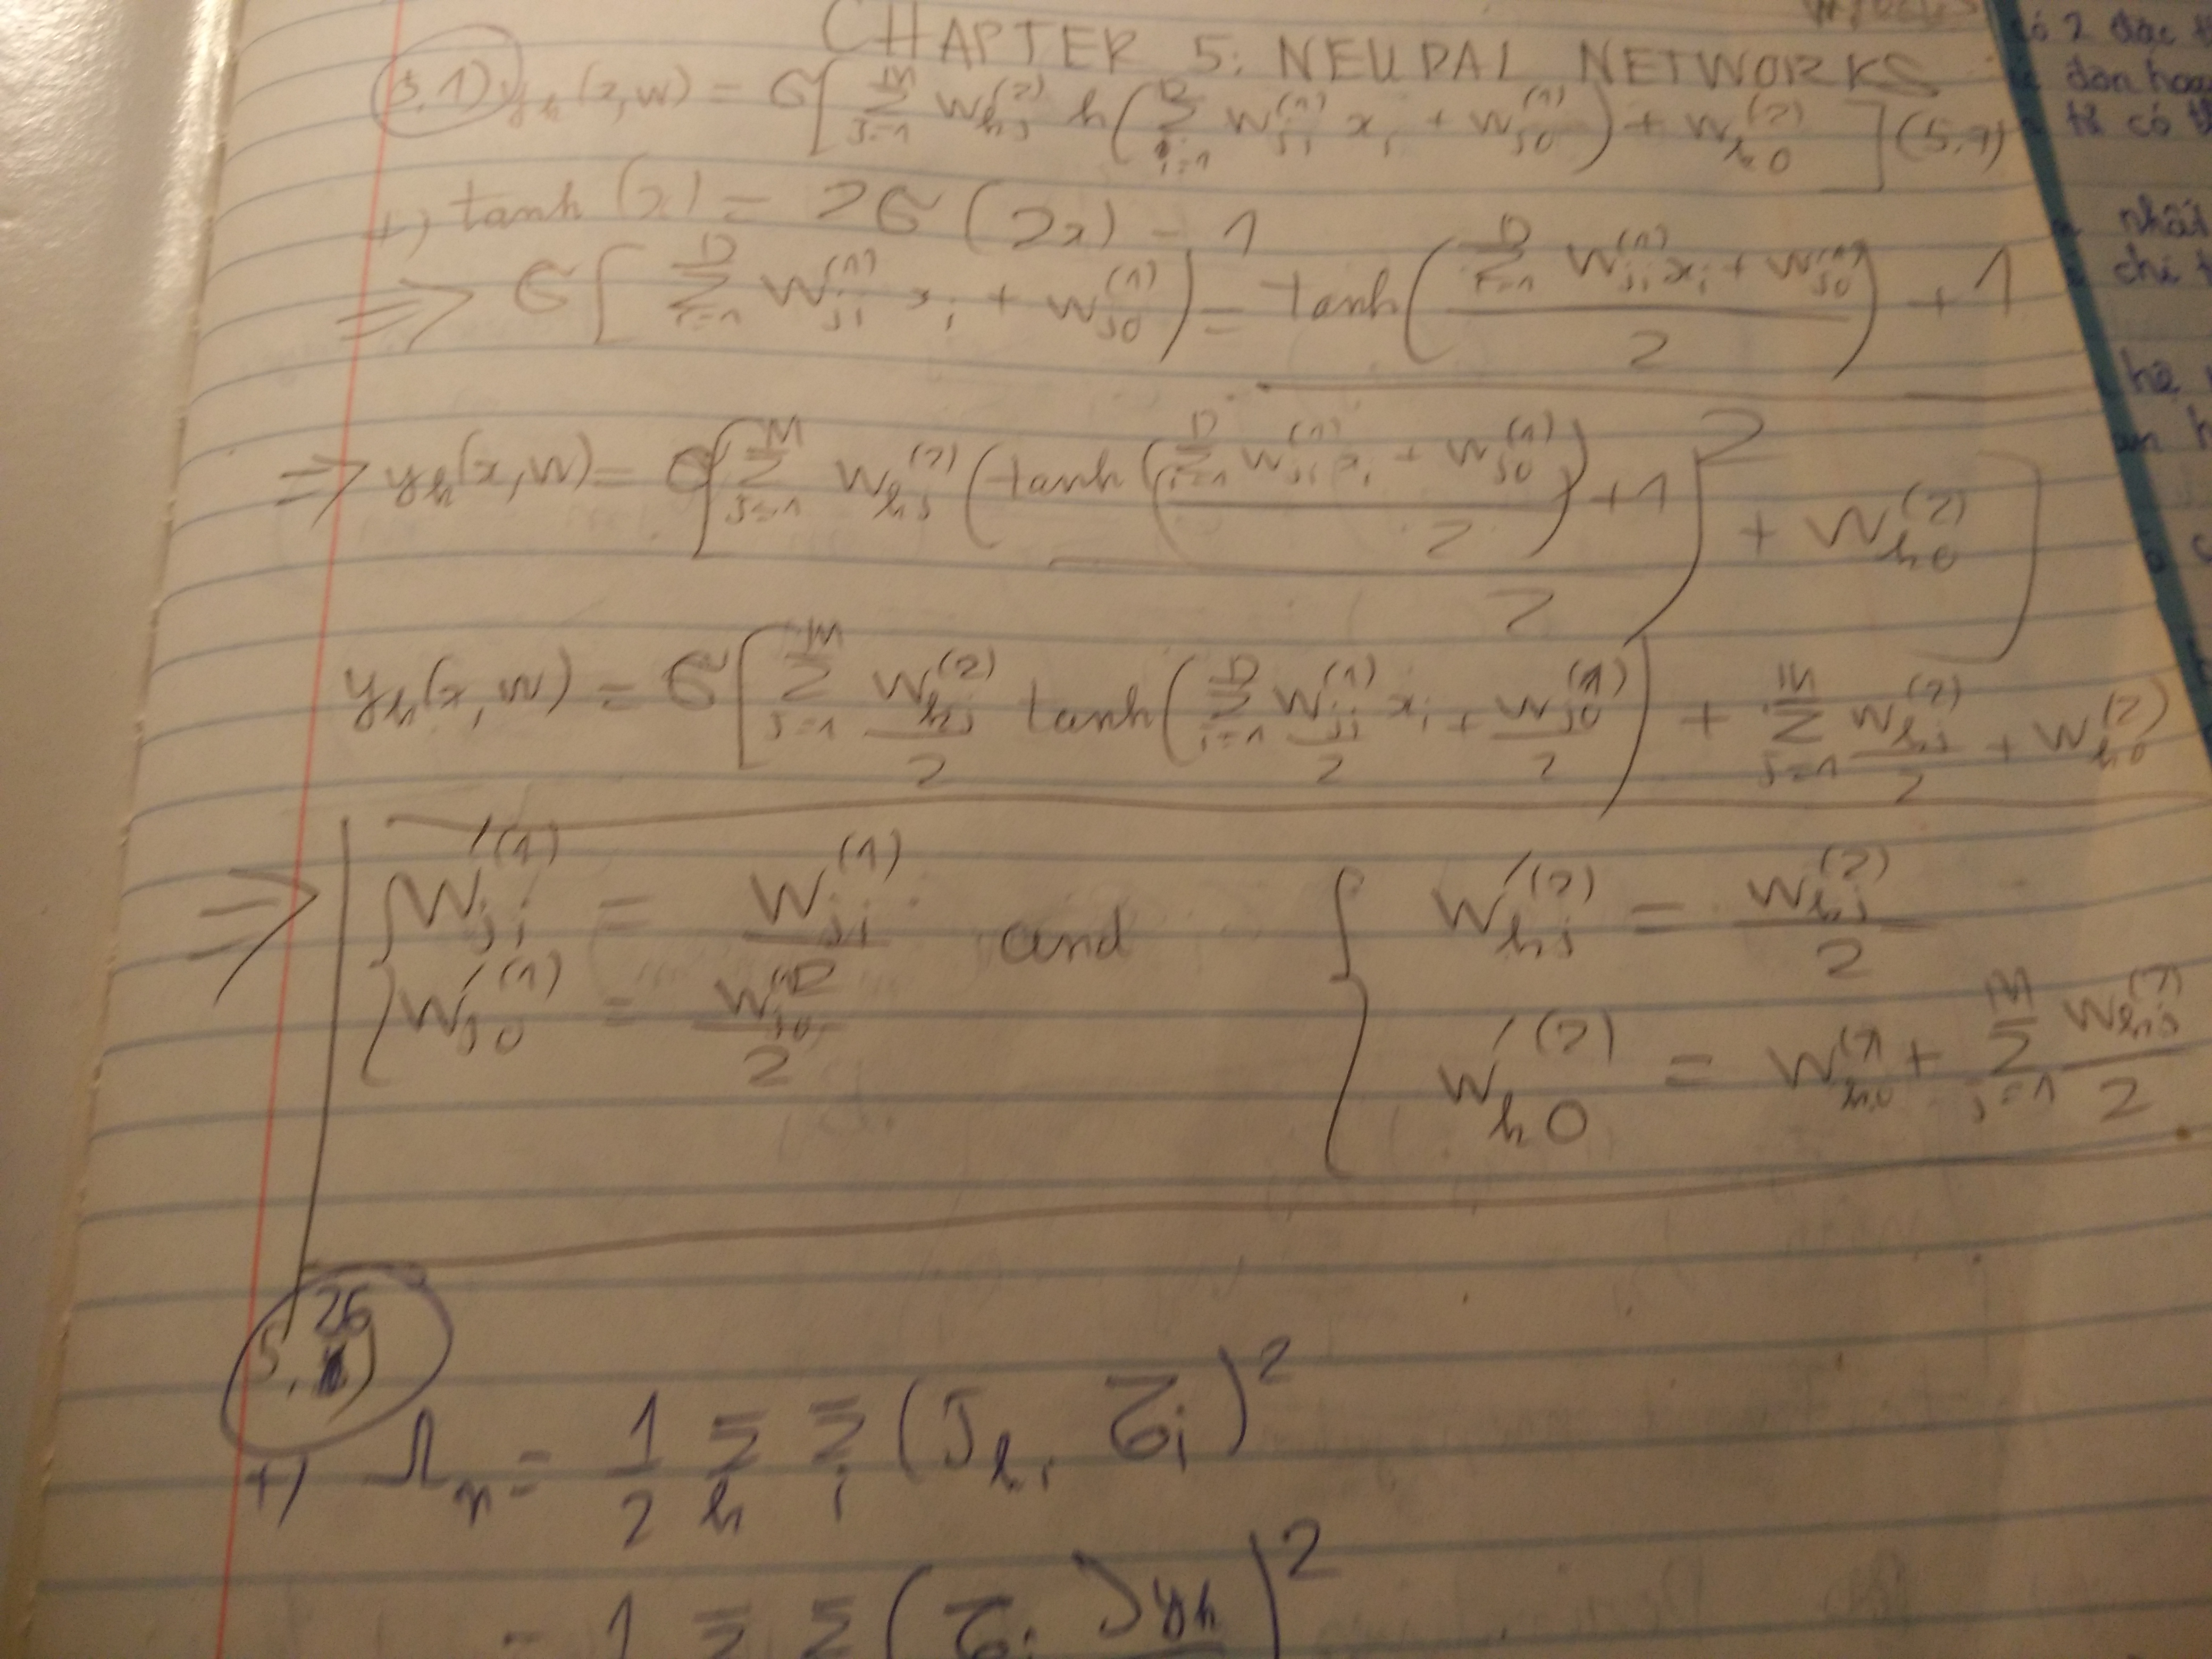 CHAPTER 5: NEURAL NETWORKS
5.1) y_k(x,w) = σ[ Σ_{j=1}^{M} w_{kj}^{(2)} h( Σ_{i=1}^{D} w_{ji}^{(1)} x_i + w_{j0}^{(1)} ) + w_{k0}^{(2)} ] (5.7)
+) tanh(x) = 2σ(2x) - 1
⇒ σ[ Σ_{i=1}^{D} w_{ji}^{(1)} x_i + w_{j0}^{(1)} ) = tanh( (Σ_{i=1}^{D} w_{ji}^{(1)} x_i + w_{j0}^{(1)}) / 2 ) + 1
2
⇒ y_k(x,w) = σ[ Σ_{j=1}^{M} w_{kj}^{(2)} ( (tanh( (Σ_{i=1}^{D} w_{ji}^{(1)} x_i + w_{j0}^{(1)}) / 2 ) + 1) / 2 ) + w_{k0}^{(2)} ]
y_k(x,w) = σ[ Σ_{j=1}^{M} w_{kj}^{(2)}/2 tanh( Σ_{i=1}^{D} w_{ji}^{(1)}/2 x_i + w_{j0}^{(1)}/2 ) + Σ_{j=1}^{M} w_{kj}^{(2)}/2 + w_{k0}^{(2)}
⇒ { w'_{ji}^{(1)} = w_{ji}^{(1)}/2 and { w'_{kj}^{(2)} = w_{kj}^{(2)}/2
w'_{j0}^{(1)} = w_{j0}^{(1)}/2 w'_{k0}^{(2)} = w_{k0}^{(2)} + Σ_{j=1}^{M} w_{kj}^{(2)}/2
5.26)
+) Ω_n = 1/2 Σ_k Σ_i (J_{ki} τ_i)^2
= 1 Σ Σ ( τ_i ∂y_k )^2
có 2 đặc
nhất
chỉ
hệ